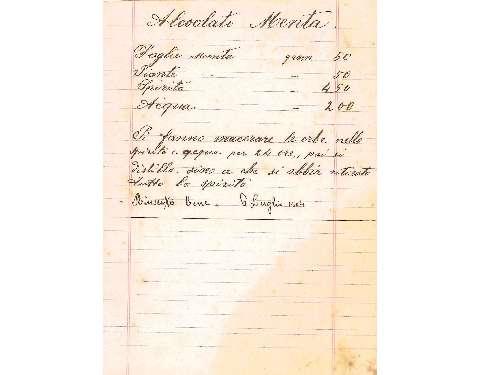 Alcoolati Menta
Foglie Menta gram 50
Piante — 50
Spirito — 450
Acqua — 200
Si fanno macerare le erbe nello
spirito e acqua per 24 ore, poi si
distilla sino a che si abbia ritirato
tutto lo spirito
Riuscito bene - 6 Luglio